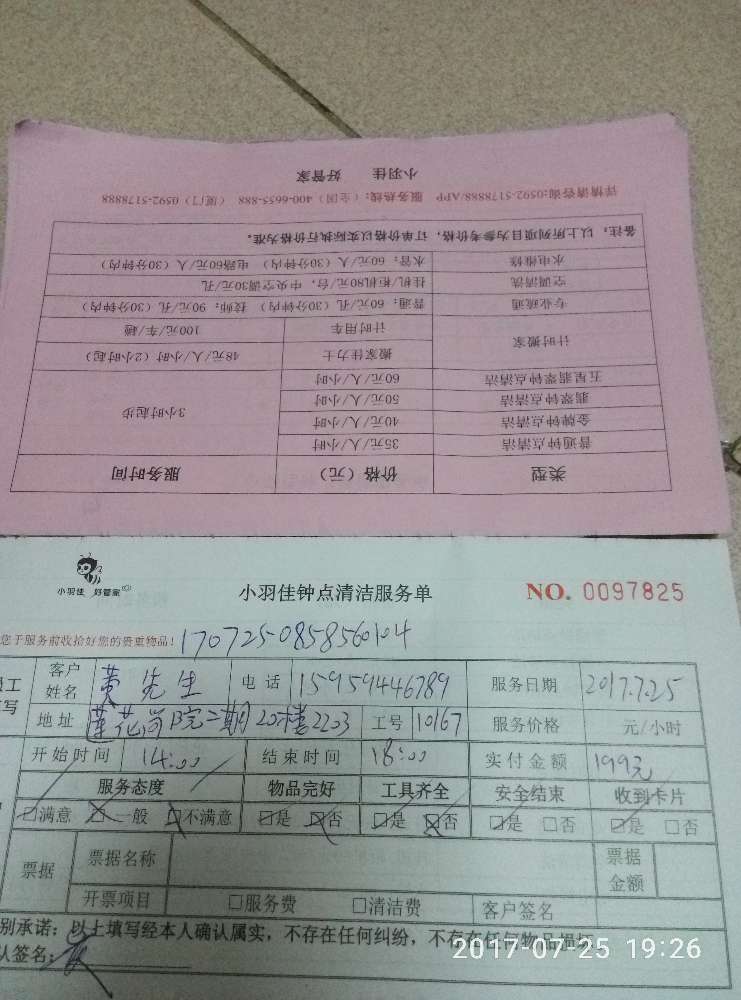 小羽佳 好管家
详情请咨询:0592-5178888/APP 服务热线：(全国) 400-6655-888 (厦门) 0592-5178888
备注：以上所列项目为参考价格，订单价格以实际执行价格为准。
水电维修 水管：60元/人/(30分钟内) 电路60元/人/(30分钟内)
空调清洗 挂机/柜机80元/台，中央空调30元/孔
专业疏通 普通：60元/(30分钟内)/孔 技师：90元/孔/(30分钟内)
计时搬家 计时用车 100元/车/趟
搬家佳力士 48元/人/小时 (2小时起)
五星翡翠钟点清洁 60元/人/小时
翡翠钟点清洁 50元/人/小时
金牌钟点清洁 40元/人/小时
普通钟点清洁 35元/人/小时
3小时起步
类型 价格（元） 服务时间
小羽佳 好管家
小羽佳钟点清洁服务单 NO. 0097825
您于服务前收拾好您的贵重物品! 170725-0858560104
客户姓名 黄先生 电话 15959446789 服务日期 2017.7.25
地址 莲花尚院二期20楼2203 工号 10167 服务价格 元/小时
开始时间 14:00 结束时间 18:00 实付金额 199元
服务态度 物品完好 工具齐全 安全结束 收到卡片
满意 一般 不满意 是 否 是 否 是 否 是 否
票据 票据名称 票据金额
开票项目 服务费 清洁费 客户签名
别承诺：以上填写经本人确认属实，不存在任何纠纷，不存在任何物品损坏。
认签名：
2017-07-25 19:26